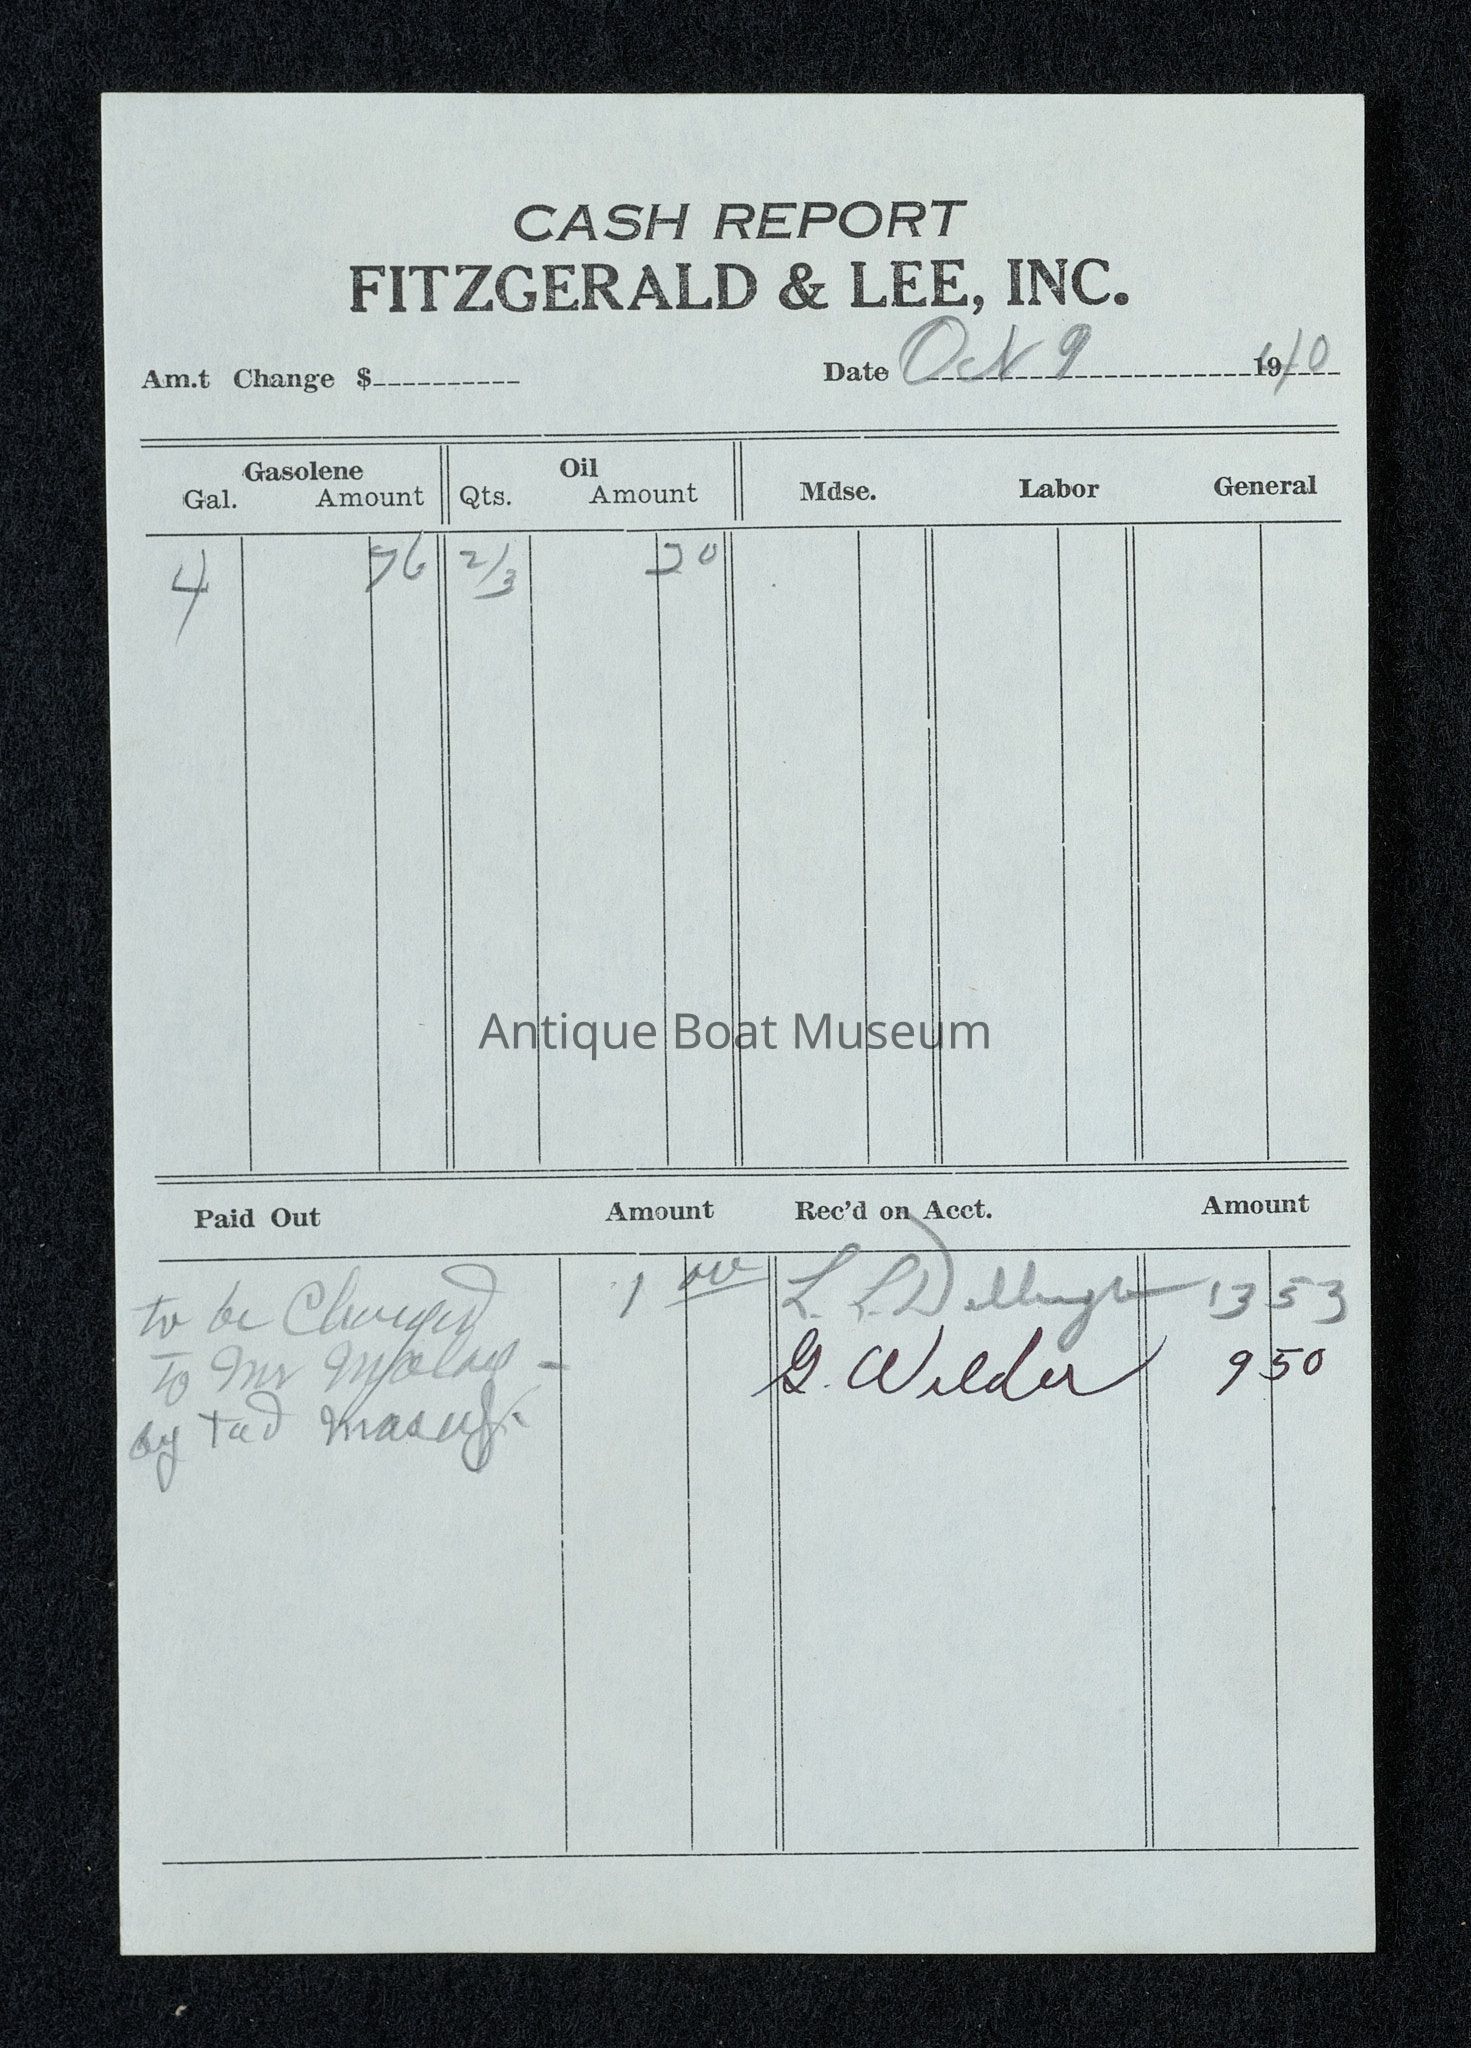 CASH REPORT
FITZGERALD & LEE, INC.
Am.t Change $ Date Oct 9 1940
Gasolene Oil
Gal. Amount Qts. Amount Mdse. Labor General
4 76 2/3 20
Antique Boat Museum
Paid Out Amount Rec'd on Acct. Amount
to be Charged 1 00 L. L. 13 53
To Mr G. Wilder 9 50
by Tad